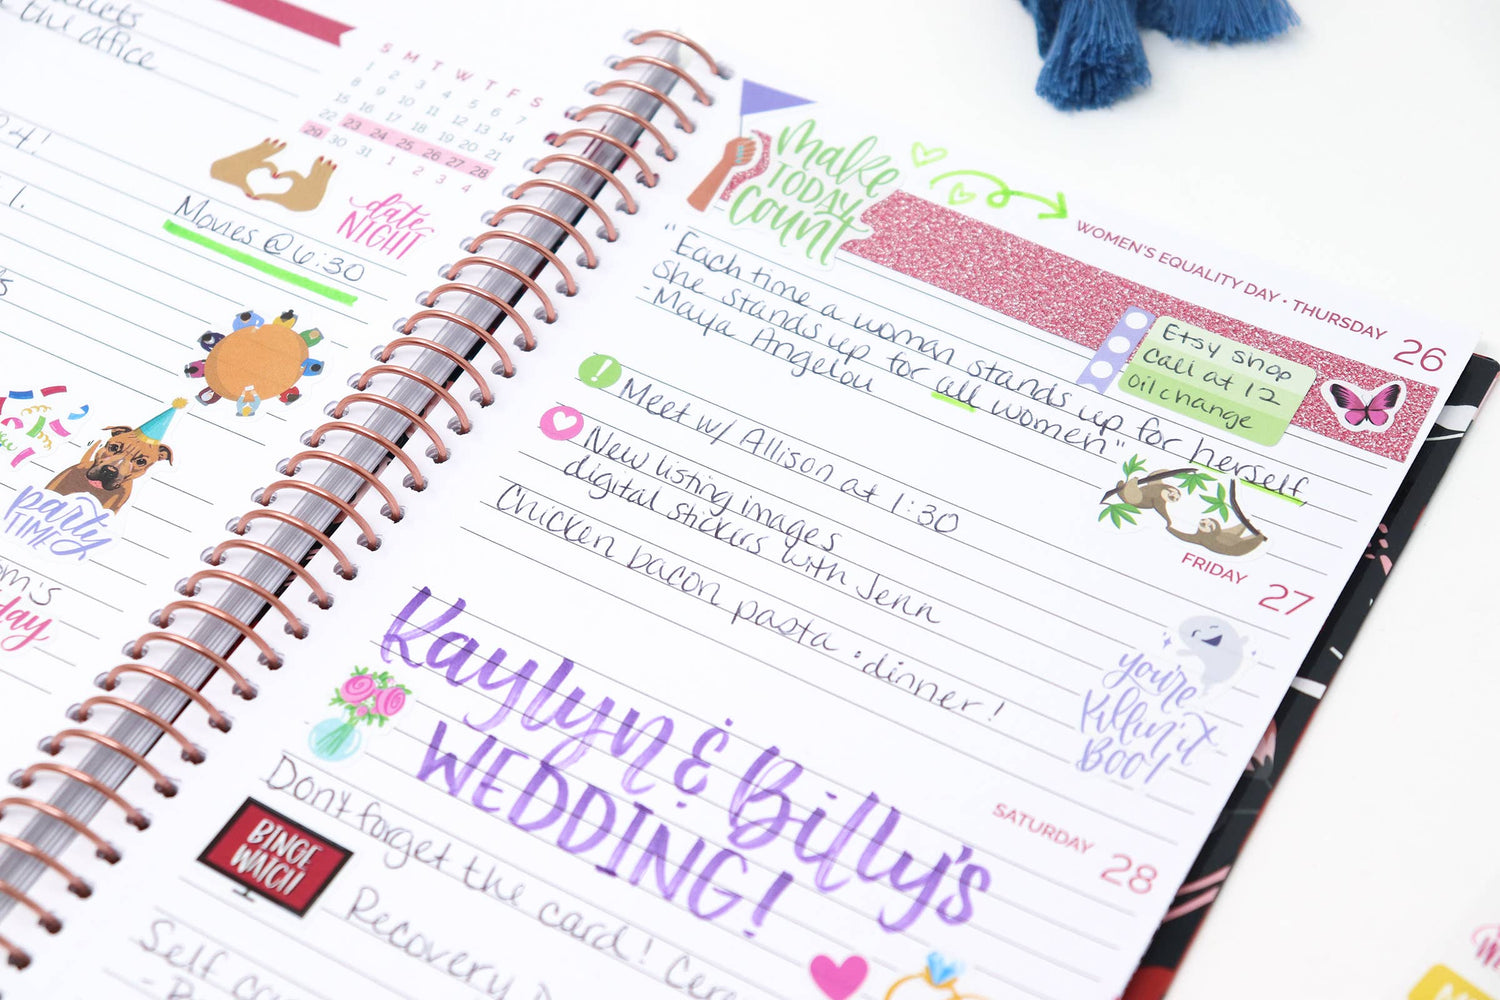 the office
S M T W T F S
1 2 3 4 5 6 7
8 9 10 11 12 13 14
15 16 17 18 19 20 21
22 23 24 25 26 27 28
29 30 31 1 2 3 4
date
NIGHT
Movies @ 6:30
party
TIME
make
TODAY
count
WOMEN'S EQUALITY DAY • THURSDAY 26
"Each time a woman stands up for herself,
she stands up for all women"
-Maya Angelou
Etsy shop
call at 12
oil change
! Meet w/ Allison at 1:30
New listing images
digital stickers with Jenn
Chicken bacon pasta : dinner!
FRIDAY 27
you're
killin' it
BOO!
Kaylyn & Billy's
WEDDING!
SATURDAY 28
Don't forget the card!
BINGE
WATCH
Recovery
Self